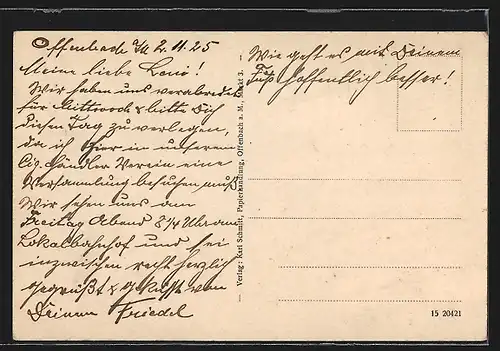 Offenbach a/M 2.11.25
Meine liebe Leni!
Wir haben uns verabredet
für Mittwoch & bitte Dich
diesen Tag zu verlegen,
da ich hier in unserem
Cig. Händler Verein eine
Versammlung besuchen muß
Wir sehen uns am
Freitag Abend 8 1/4 Uhr am
Lokalbahnhof und sei
inzwischen recht herzlich
gegrüßt & geküsst von
Deinem Friedel
Wie geht es mit Deinem
Fuß hoffentlich besser!
— Verlag: Karl Schmitt, Papierhandlung, Offenbach a. M., Markt 3. —
15 20421